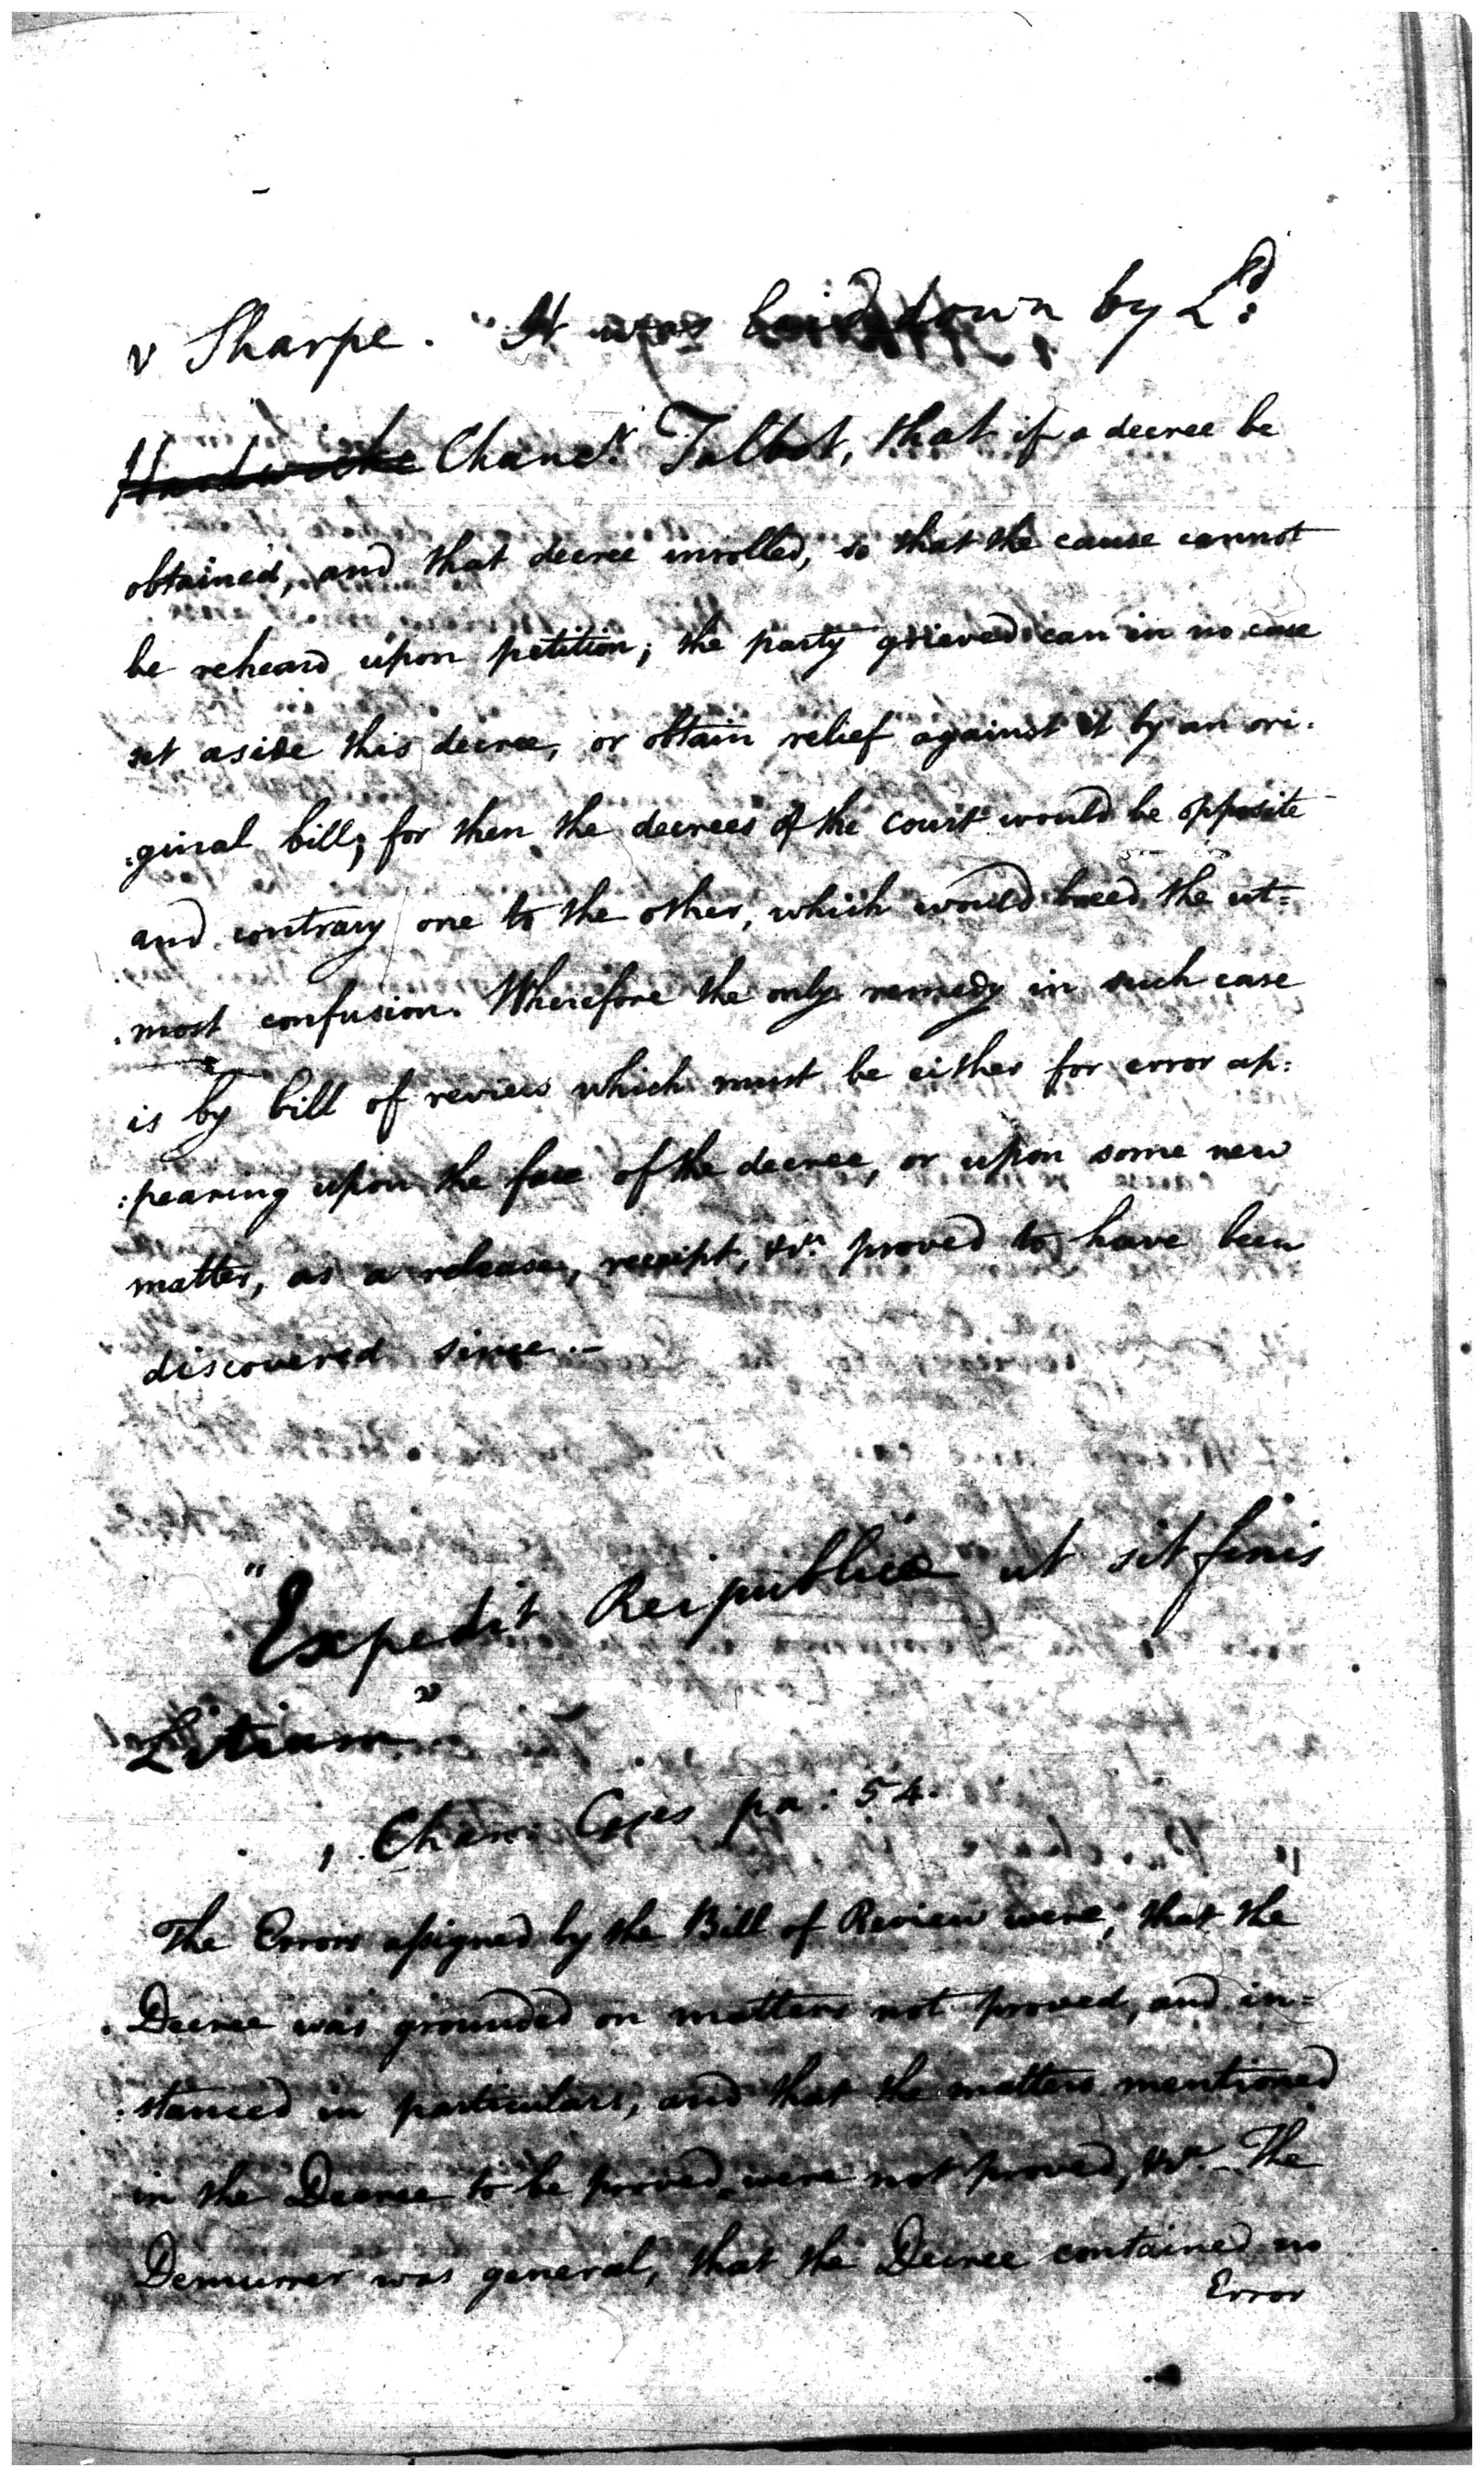 v Sharpe. "It was laid down by Ld:
Hardwicke Chancr. Talbot, that if a decree be
obtained, and that decree inrolled, so that the cause cannot
be reheard upon petition; the party grieved can in no case
set aside this decree, or obtain relief against it by an ori:
:ginal bill; for then the decrees of the court would be opposite
and contrary one to the other, which would breed the ut=
:most confusion. Wherefore the only remedy in such case
is by bill of review which must be either for error ap:
:pearing upon the face of the decree, or upon some new
matter, as a release, receipt, &ca. proved to have been
discovered since.-
"Expedit Reipublicæ ut sit finis
Litium"
1. Chan: Cases pa: 54.
The Errors assigned by the Bill of Review were, that the
Decree was grounded on matters not proved, and in=
:stanced in particulars, and that the matters mentioned
in the Decree to be proved were not proved, &ca. The
Demurrer was general, that the Decree contained no
Error